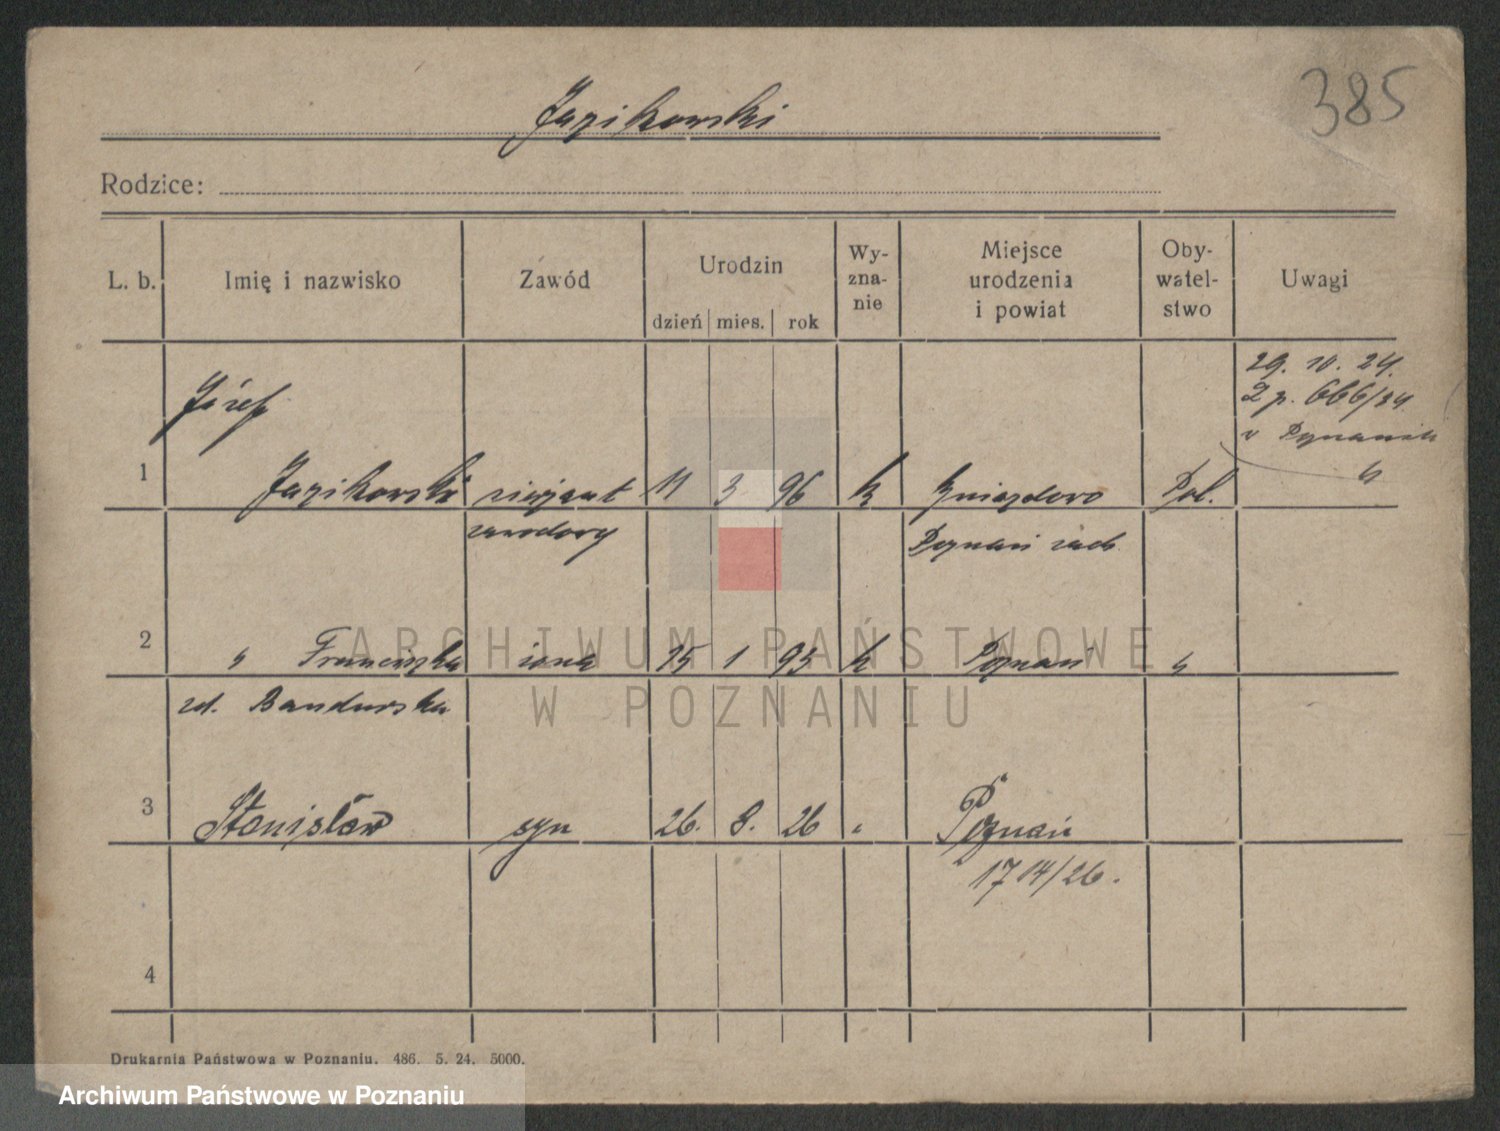 385
Jazikowski
Rodzice:
L. b. Imię i nazwisko Zawód Urodzin dzień mies. rok Wy-zna-nie Miejsce urodzenia i powiat Oby-watel-stwo Uwagi
29. 10. 24.
666/24
Józef
1 Jazikowski sierżant 11 3 96 k Gniazdowo Pol.
zawodowy Poznań zach
2 " Franciszka żona 25 1 93 k Poznań "
zd. Bandurska
3 Stanisław syn 26. 8. 26 " Poznań
1714/26.
4
Drukarnia Państwowa w Poznaniu. 486. 5. 24. 5000.
ARCHIWUM PAŃSTWOWE
W POZNANIU
Archiwum Państwowe w Poznaniu